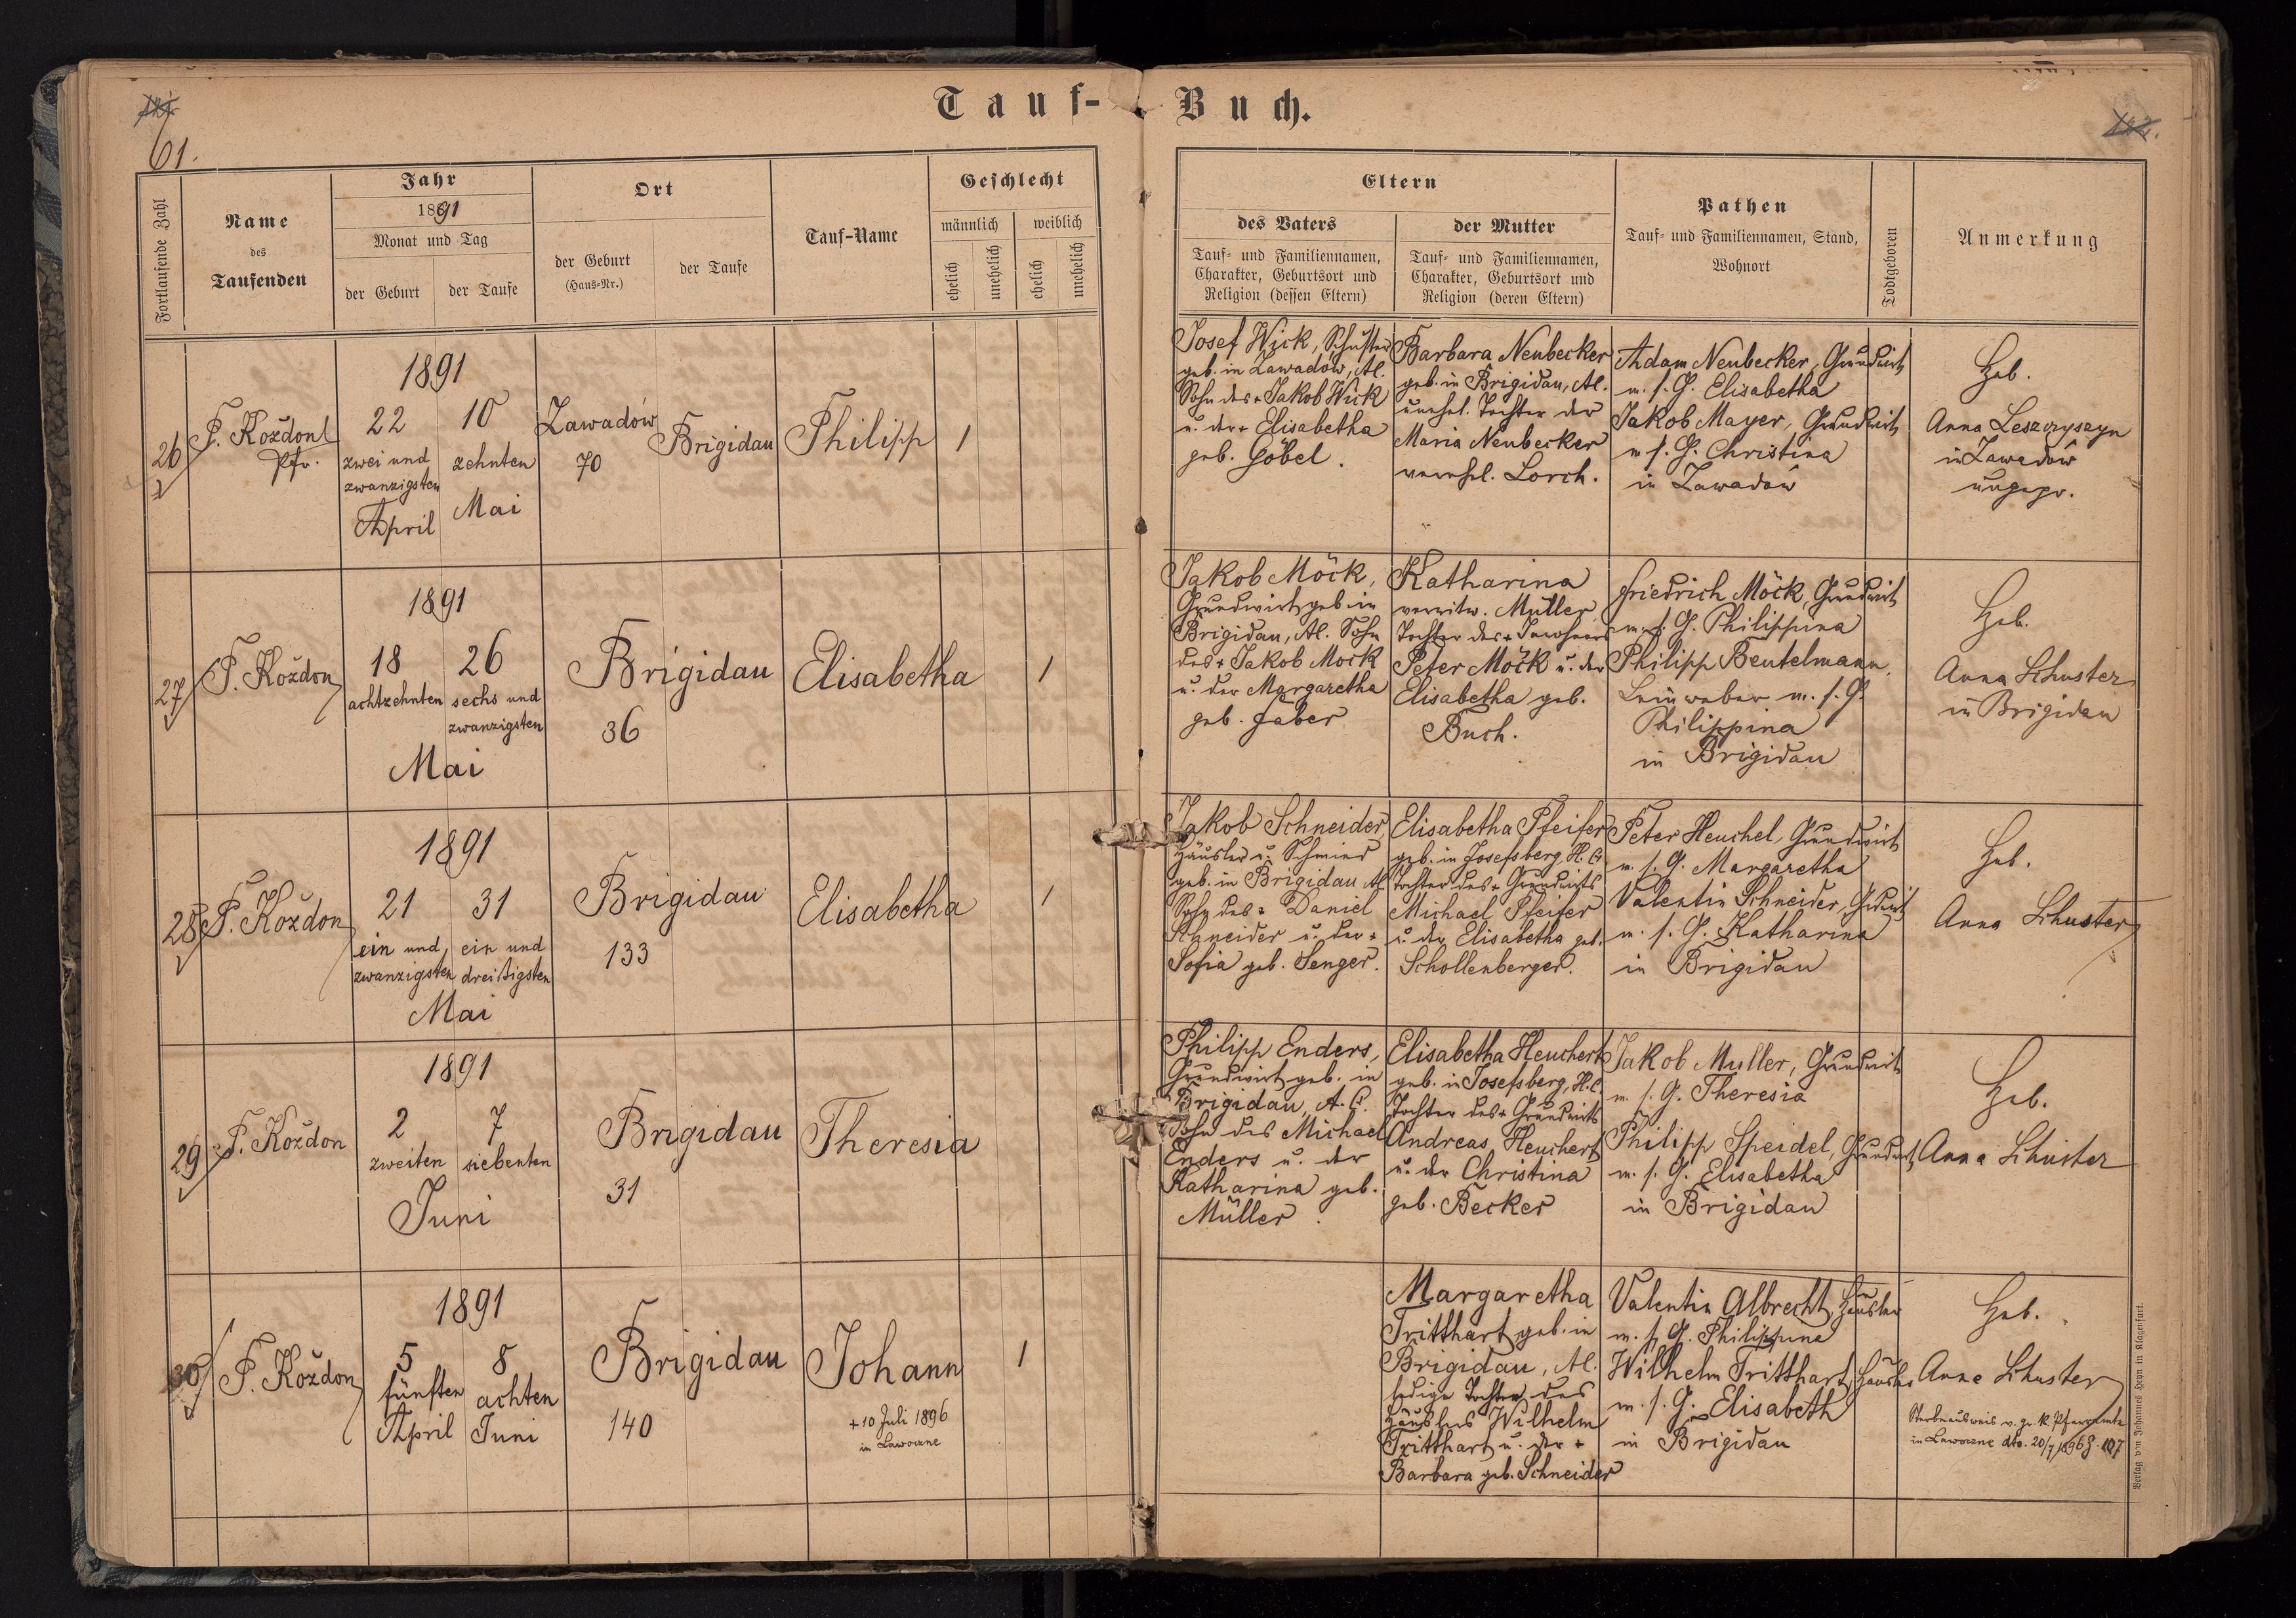 Tauf-Buch.
61.
Fortlaufende Zahl
Name
des
Taufenden
Jahr
1891
Monat und Tag
der Geburt
der Taufe
Ort
der Geburt
(Haus-Nr.)
der Taufe
Tauf-Name
Geschlecht
männlich
weiblich
ehelich
unehelich
ehelich
unehelich
Eltern
des Vaters
Tauf- und Familiennamen,
Charakter, Geburtsort und
Religion (dessen Eltern)
der Mutter
Tauf- und Familiennamen,
Charakter, Geburtsort und
Religion (deren Eltern)
Pathen
Tauf- und Familiennamen, Stand,
Wohnort
Todtgeboren
Anmerkung
26
F. Koždon
Pfr.
1891
22
zwei und
zwanzigsten
April
10
zehnten
Mai
Zawadów
70
Brigidau
Philipp
1
Josef Wick, Schuster
geb. in Zawadów, A.
Sohn des + Jakob Wick
u. der + Elisabetha
geb. Göbel.
Barbara Neubecker
geb. in Brigidau, A.
unehel. Tochter der
Maria Neubecker
verehel. Lorch.
Adam Neubecker, Grundwirt
m. s. G. Elisabetha
Jakob Mayer, Grundwirt
m. s. G. Christina
in Zawadów
Heb.
Anna Leszczyszyn
in Zawadów
ungepr.
27
F. Koždon
1891
18
achtzehnten
26
sechs und
zwanzigsten
Mai
Brigidau
36
Elisabetha
1
Jakob Möck,
Grundwirt geb. in
Brigidau, A. Sohn
des + Jakob Möck
u. der Margaretha
geb. Faber
Katharina
verwitw. Müller
Tochter des + Inwohners
Peter Möck u. der
Elisabetha geb.
Buch.
Friedrich Möck, Grundwirt
m. s. G. Philippina
Philipp Beutelmann,
Leinweber m. s. G.
Philippina
in Brigidau
Heb.
Anna Schuster
in Brigidau
28
F. Koždon
1891
21
ein und
zwanzigsten
31
ein und
dreißigsten
Mai
Brigidau
133
Elisabetha
1
Jakob Schneider,
Häusler u. Schmied
geb. in Brigidau A.
Sohn des + Daniel
Schneider u. der +
Sofia geb. Senger.
Elisabetha Pfeifer
geb. in Josefsberg H. C.
Tochter des + Grundwirts
Michael Pfeifer
u. der Elisabetha geb.
Schollenberger.
Peter Heuchel, Grundwirt
m. s. G. Margaretha
Valentin Schneider, Grdwirt
m. s. G. Katharina
in Brigidau
Heb.
Anna Schuster
29
F. Koždon
1891
2
zweiten
7
siebenten
Juni
Brigidau
31
Theresia
Philipp Enders,
Grundwirt geb. in
Brigidau, A. C.
Sohn des Michael
Enders u. der
Katharina geb.
Müller.
Elisabetha Heuchert
geb. in Josefsberg, H. C.
Tochter des + Grundwirts
Andreas Heuchert
u. der Christina
geb. Becker
Jakob Muller, Grundwirt
m. s. G. Theresia
Philipp Speidel, Grundwirt
m. s. G. Elisabetha
in Brigidau
Heb.
Anna Schuster
30
F. Koždon
1891
5
fünften
April
8
achten
Juni
Brigidau
140
Johann
+ 10 Juli 1896
in Lawoczne
1
Margaretha
Tritthart geb. in
Brigidau, A.
ledige Tochter des
Häuslers Wilhelm
Tritthart u. der +
Barbara geb. Schneider
Valentin Albrecht, Häusler
m. s. G. Philippina
Wilhelm Tritthart, Häusler
m. s. G. Elisabeth
in Brigidau
Heb.
Anna Schuster
Sterbeausweis v. gr. k. Pfarramte
in Lawoczne dto. 20/7 1896 Z. 107
Verlag von Johannes Heyn in Klagenfurt.